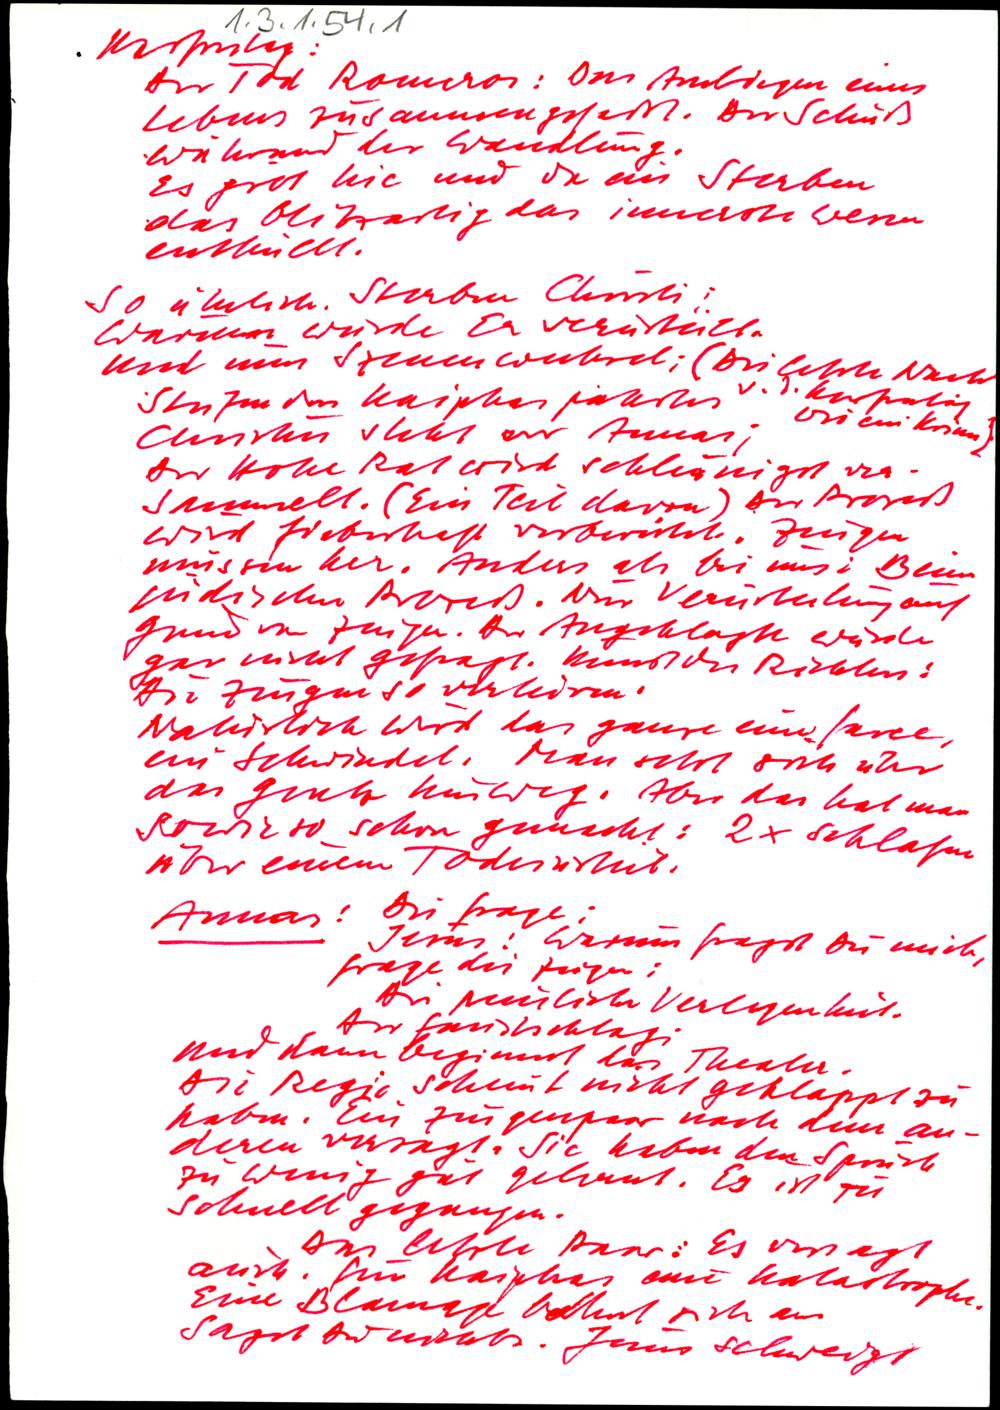 1.3.1.54.1
Karfreitag:
Der Tod Romeros: Das Anliegen eines
Lebens zusammengefaßt. Der Schuß
während der Wandlung.
Es gibt hie und da ein Sterben
das blitzartig das innerste Wesen
enthüllt.
So ähnlich. Sterben Christi:
Warum wurde Er verurteilt.
Und nun Szenenwechsel: (Die letzte Nacht
v. J.
wie ein Krimi)
Christus steht vor Annas;
Der Hohe Rat wird schleunigst ver-
sammelt. (Ein Teil davon) Der Prozeß
wird fieberhaft vorbereitet. Zeugen
müssen her. Anders als bei uns: Beim
jüdischen Prozeß. Nur Verurteilung auf
Grund von Zeugen. Der Angeklagte wurde
gar nicht gefragt. Kunst des Richters:
Die Zeugen so verhören.
Natürlich wird das ganze eine Farce,
ein Schwindel. Man setzt sich über
das Gesetz hinweg. Aber das hat man
sowieso schon gemacht: 2x schlafen
über einem Todesurteil.
Annas: Die Frage:
Jesus: Warum fragst Du mich,
frage die Zeugen:
Die peinliche Verlegenheit.
Der Faustschlag.
Und dann beginnt das Theater.
Die Regie scheint nicht geklappt zu
haben. Ein Zeugenpaar nach dem an-
deren versagt. Sie haben den Spruch
zu wenig gut gelernt. Es ist zu
schnell gegangen.
Das letzte Paar: Es versagt
auch. Für Kaiphas eine Katastrophe.
Eine Blamage bahnt sich an
Sagst Du nichts. Jesus schweigt